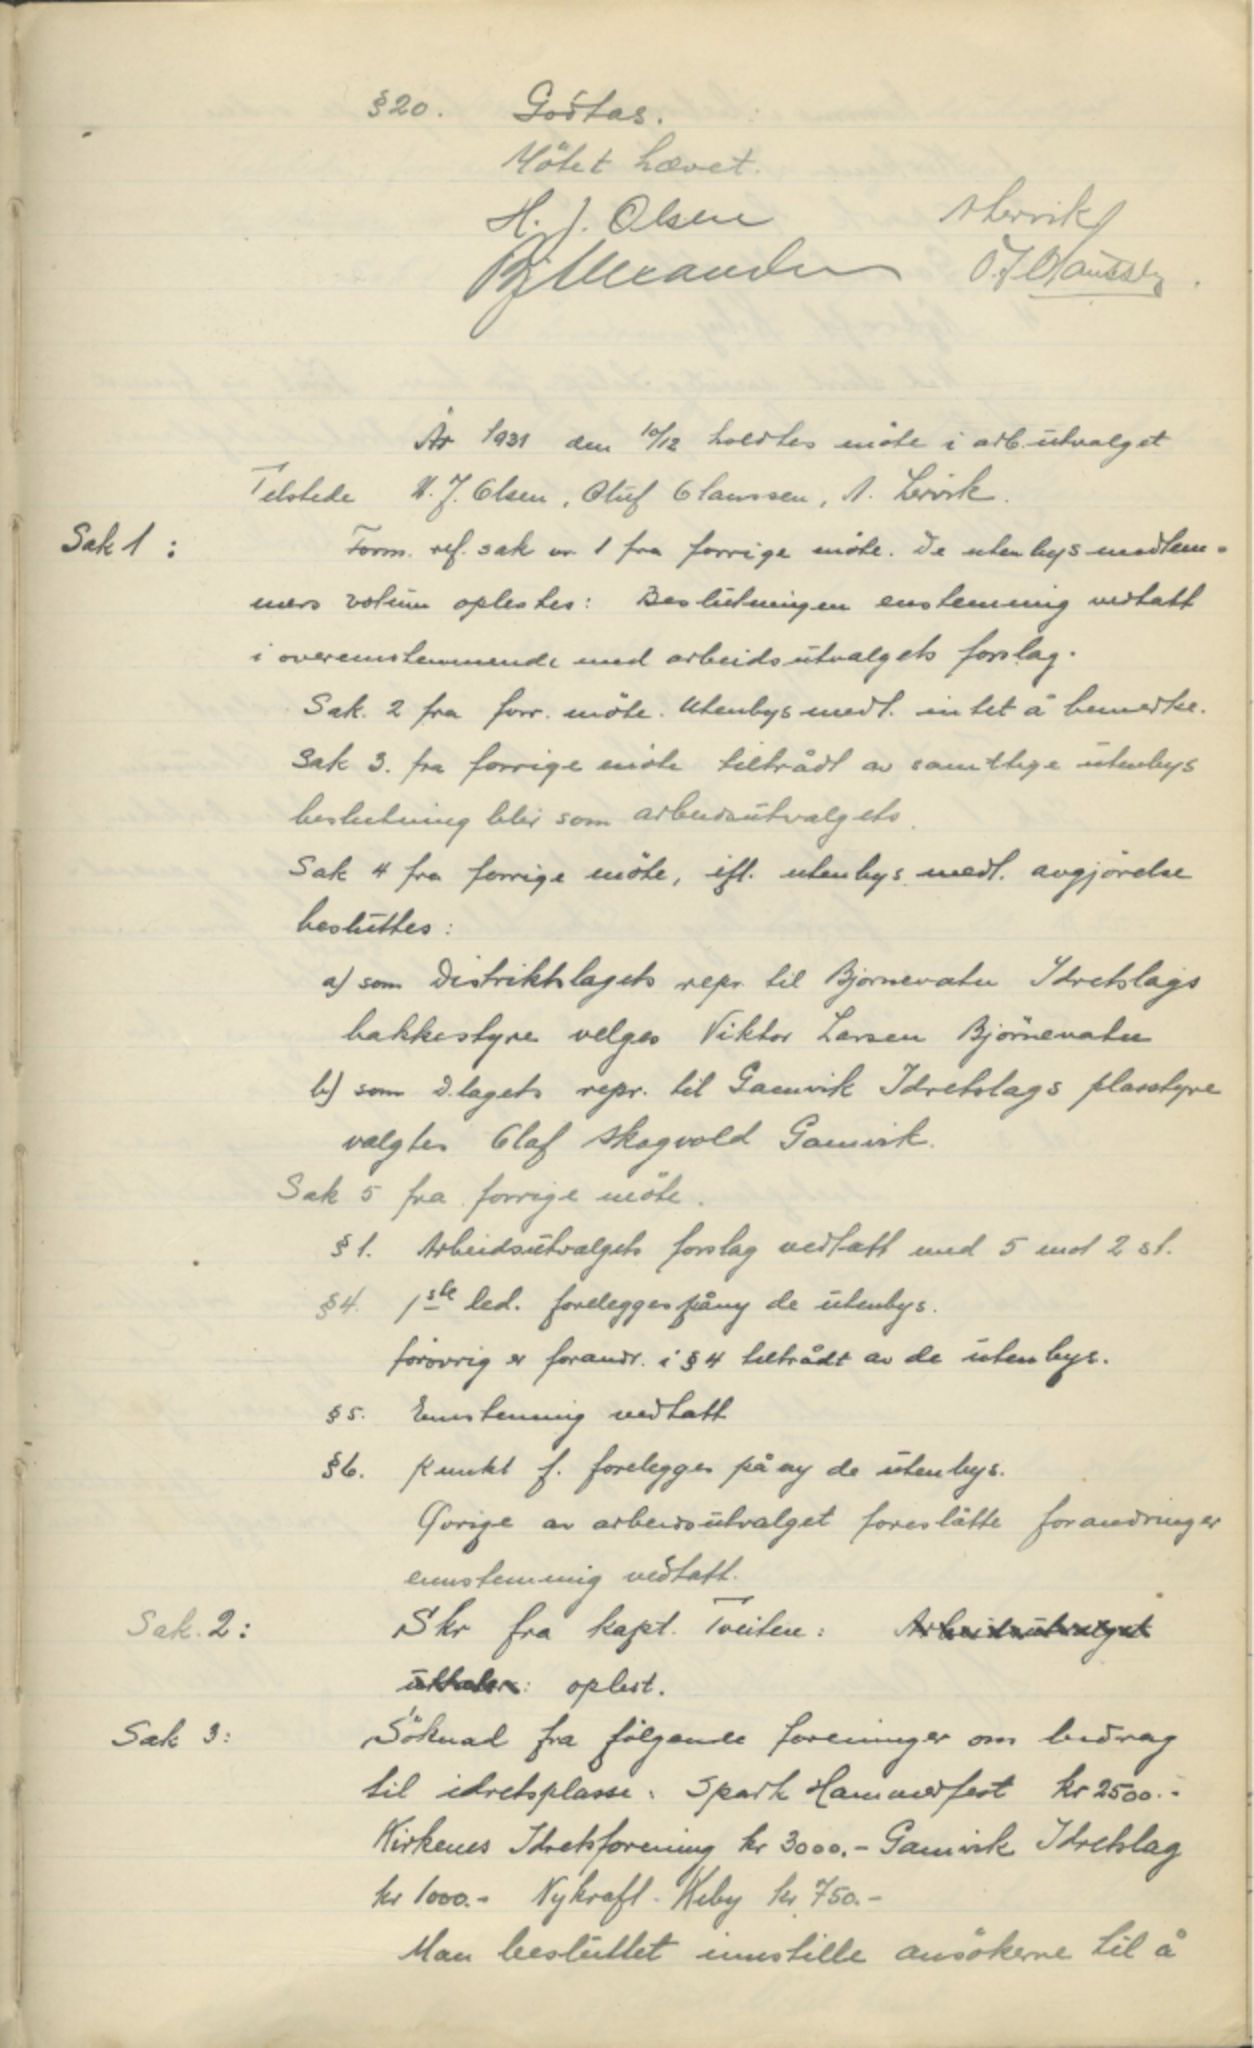 §20. Godtas.
Mötet hævet.
H. J. Olsen A Lervik
Bj Alexander O. J. Claussen
År 1931 den 10/12 holdtes möte i arb.utvalget
Tilstede H. J. Olsen, Oluf Claussen, A. Lervik.
Sak 1: Form. ref. sak nr. 1 fra forrige möte. De utenbys medlem-
mers votum oplestes: Beslutningen enstemmig vedtatt
i overensstemmende med arbeidsutvalgets forslag.
Sak. 2 fra forr. möte. Utenbys medl. intet å bemerke.
Sak 3. fra forrige möte tiltrådt av samtlige utenbys
beslutning blir som arbeidsutvalgets.
Sak 4 fra forrige möte, ifl. utenbys medl. avgjörelse
besluttes:
a) som Distriktslagets repr. til Bjørnevatn Idretslags
bakkestyre velges Viktor Larsen Bjørnevatn
b) som D.lagets repr. til Gamvik Idretslags plasstyre
valgtes Olaf Skogvold Gamvik.
Sak 5 fra forrige möte.
§ 1. Arbeidsutvalgets forslag vedtatt med 5 mot 2 st.
§ 4. 1ste led. forelegges påny de utenbys.
forövrig er forandr. i § 4 tiltrådt av de utenbys.
§ 5. Ennstemmig vedtatt
§ 6. Punkt f. forelegges på ny de utenbys.
Øvrige av arbeidsutvalget foreslåtte forandringer
ennstemmig vedtatt.
Sak. 2: Skr fra kapt. Tveiten: Arbeidsutvalget
uttaler: oplest.
Sak 3: Söknad fra fölgende foreninger om bidrag
til idretsplasse: Spark Hammerfest kr 2500.-
Kirkenes Idretsforening kr 3000.- Gamvik Idretslag
kr 1000.- Nykraft - Kiby kr 750.-
Man besluttet innstille ansökerne til å